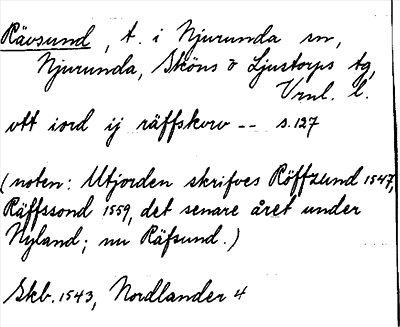 Rävsund, t. i Njurunda sn,
Njurunda, Sköns o Ljustorps tg,
Vrnl. l.
ott iord ij räffskovo -- s. 127
(noten: Utjorden skrifves Röffzund 1547,
Räffssond 1559, det senare året under
Nyland; nu Räfsund.)
Skb. 1543, Nordlander 4